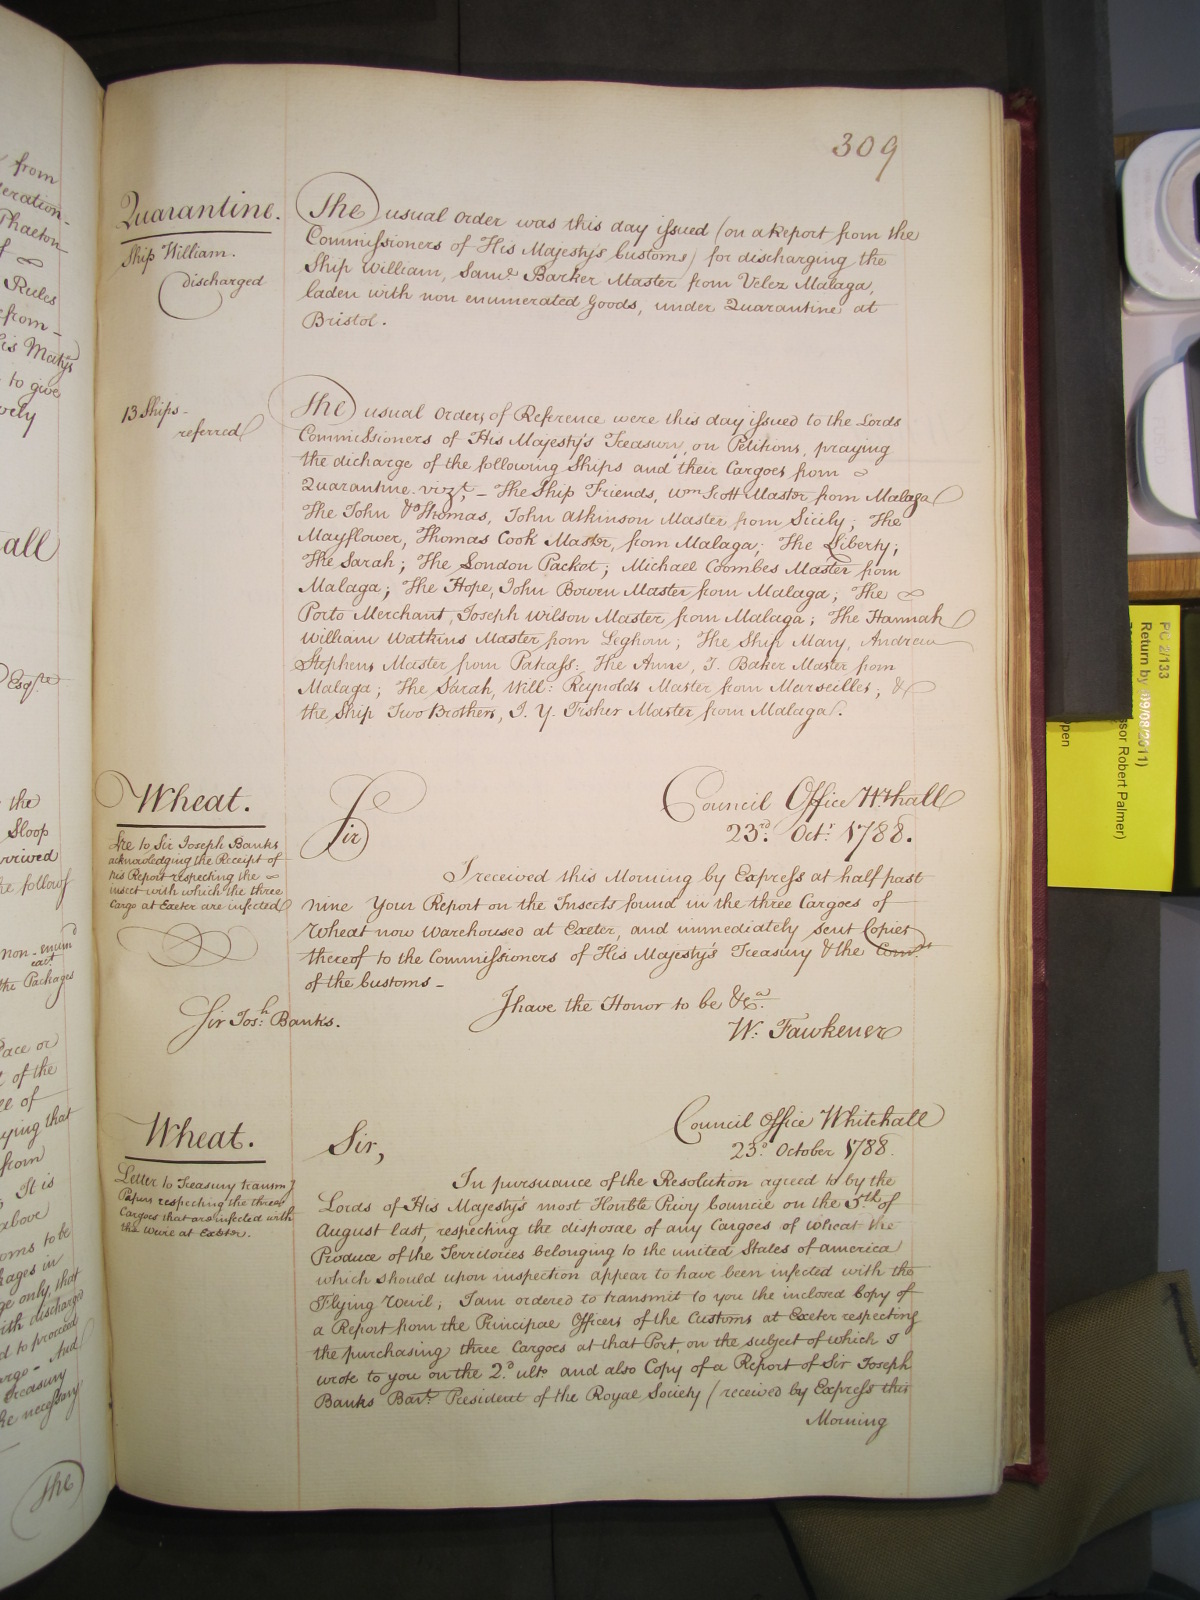 309
Quarantine.
Ship William.
discharged
The usual order was this day issued (on a Report from the
Commissioners of His Majesty's Customs) for discharging the
Ship William, Saml. Barker Master from Velez Malaga,
laden with non enumerated Goods, under Quarantine at
Bristol.
13 Ships
referred
The usual orders of Reference were this day issued to the Lords
Commissioners of His Majesty's Treasury, on Petitions, praying
the dicharge of the following Ships and their Cargoes from
Quarantine vizt. – The Ship Friends, Wm Scott Master from Malaga
The John & Thomas, John Atkinson Master from Sicily; The
Mayflower, Thomas Cook Master, from Malaga; The Liberty;
The Sarah; The London Packet; Michael Coombes Master from
Malaga; The Hope, John Bowen Master from Malaga; The
Porto Merchant, Joseph Wilson Master from Malaga; The Hannah
William Watkins Master from Leghorn; The Ship Mary, Andrew
Stephens Master from Patrass: The Anne, T. Baker Master from
Malaga; The Sarah, Will: Reynolds Master from Marseilles; &
the Ship Two Brothers, J. Y. Fisher Master from Malaga.
Wheat.
Lre to Sir Joseph Banks
acknowledging the Receipt of
his Report respecting the
insect with which the three
Cargo at Exeter are infected
Council Office Wthall
23rd. Octr. 1788.
Sir
I received this Morning by Express at half past
nine Your Report on the Insects found in the three Cargoes of
Wheat now Warehoused at Exeter, and immediately sent Copies
thereof to the Commissioners of His Majesty's Treasury & the Comrs
of the Customs –
I have the Honor to be &ca.
Sir Josh. Banks.
W. Fawkener
Wheat.
Letter to Treasury transmg
Papers respecting the three
Cargoes that are infected with
the Wevil at Exeter.
Council Office Whitehall
23d. October 1788.
Sir,
In pursuance of the Resolution agreed to by the
Lords of His Majesty's most Honble Privy Council on the 5th of
August last, respecting the disposal of any Cargoes of Wheat the
Produce of the Territories belonging to the united States of america
which should upon inspection appear to have been infected with the
Flying Wevil; I am ordered to transmit to you the inclosed Copy of
a Report from the Principal Officers of the Customs at Exeter respecting
the purchasing three Cargoes at that Port, on the subject of which I
wrote to you on the 2d. ulto. and also Copy of a Report of Sir Joseph
Banks Bart. President of the Royal Society (received by Express this
Morning
from
Rules
from
to give
all
Esqre
the
Sloop
the follow
the Packages
of the
from
It is
above
The
PC 2/133
Return by (09/08/2011)
ssor Robert Palmer)